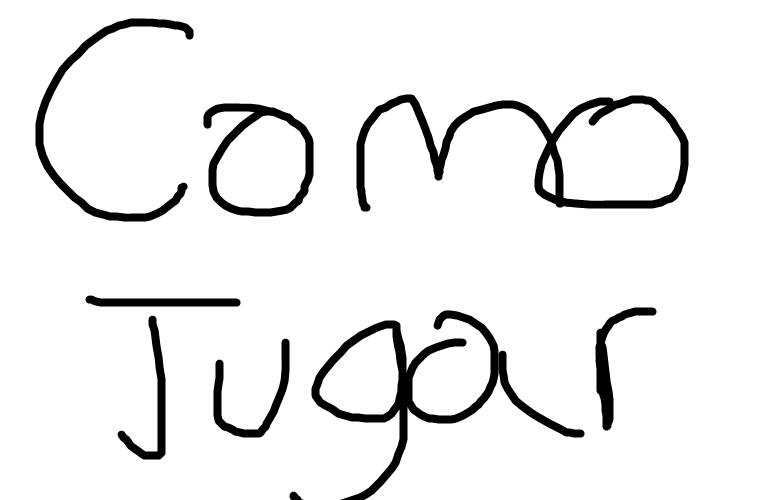 Como
Jugar